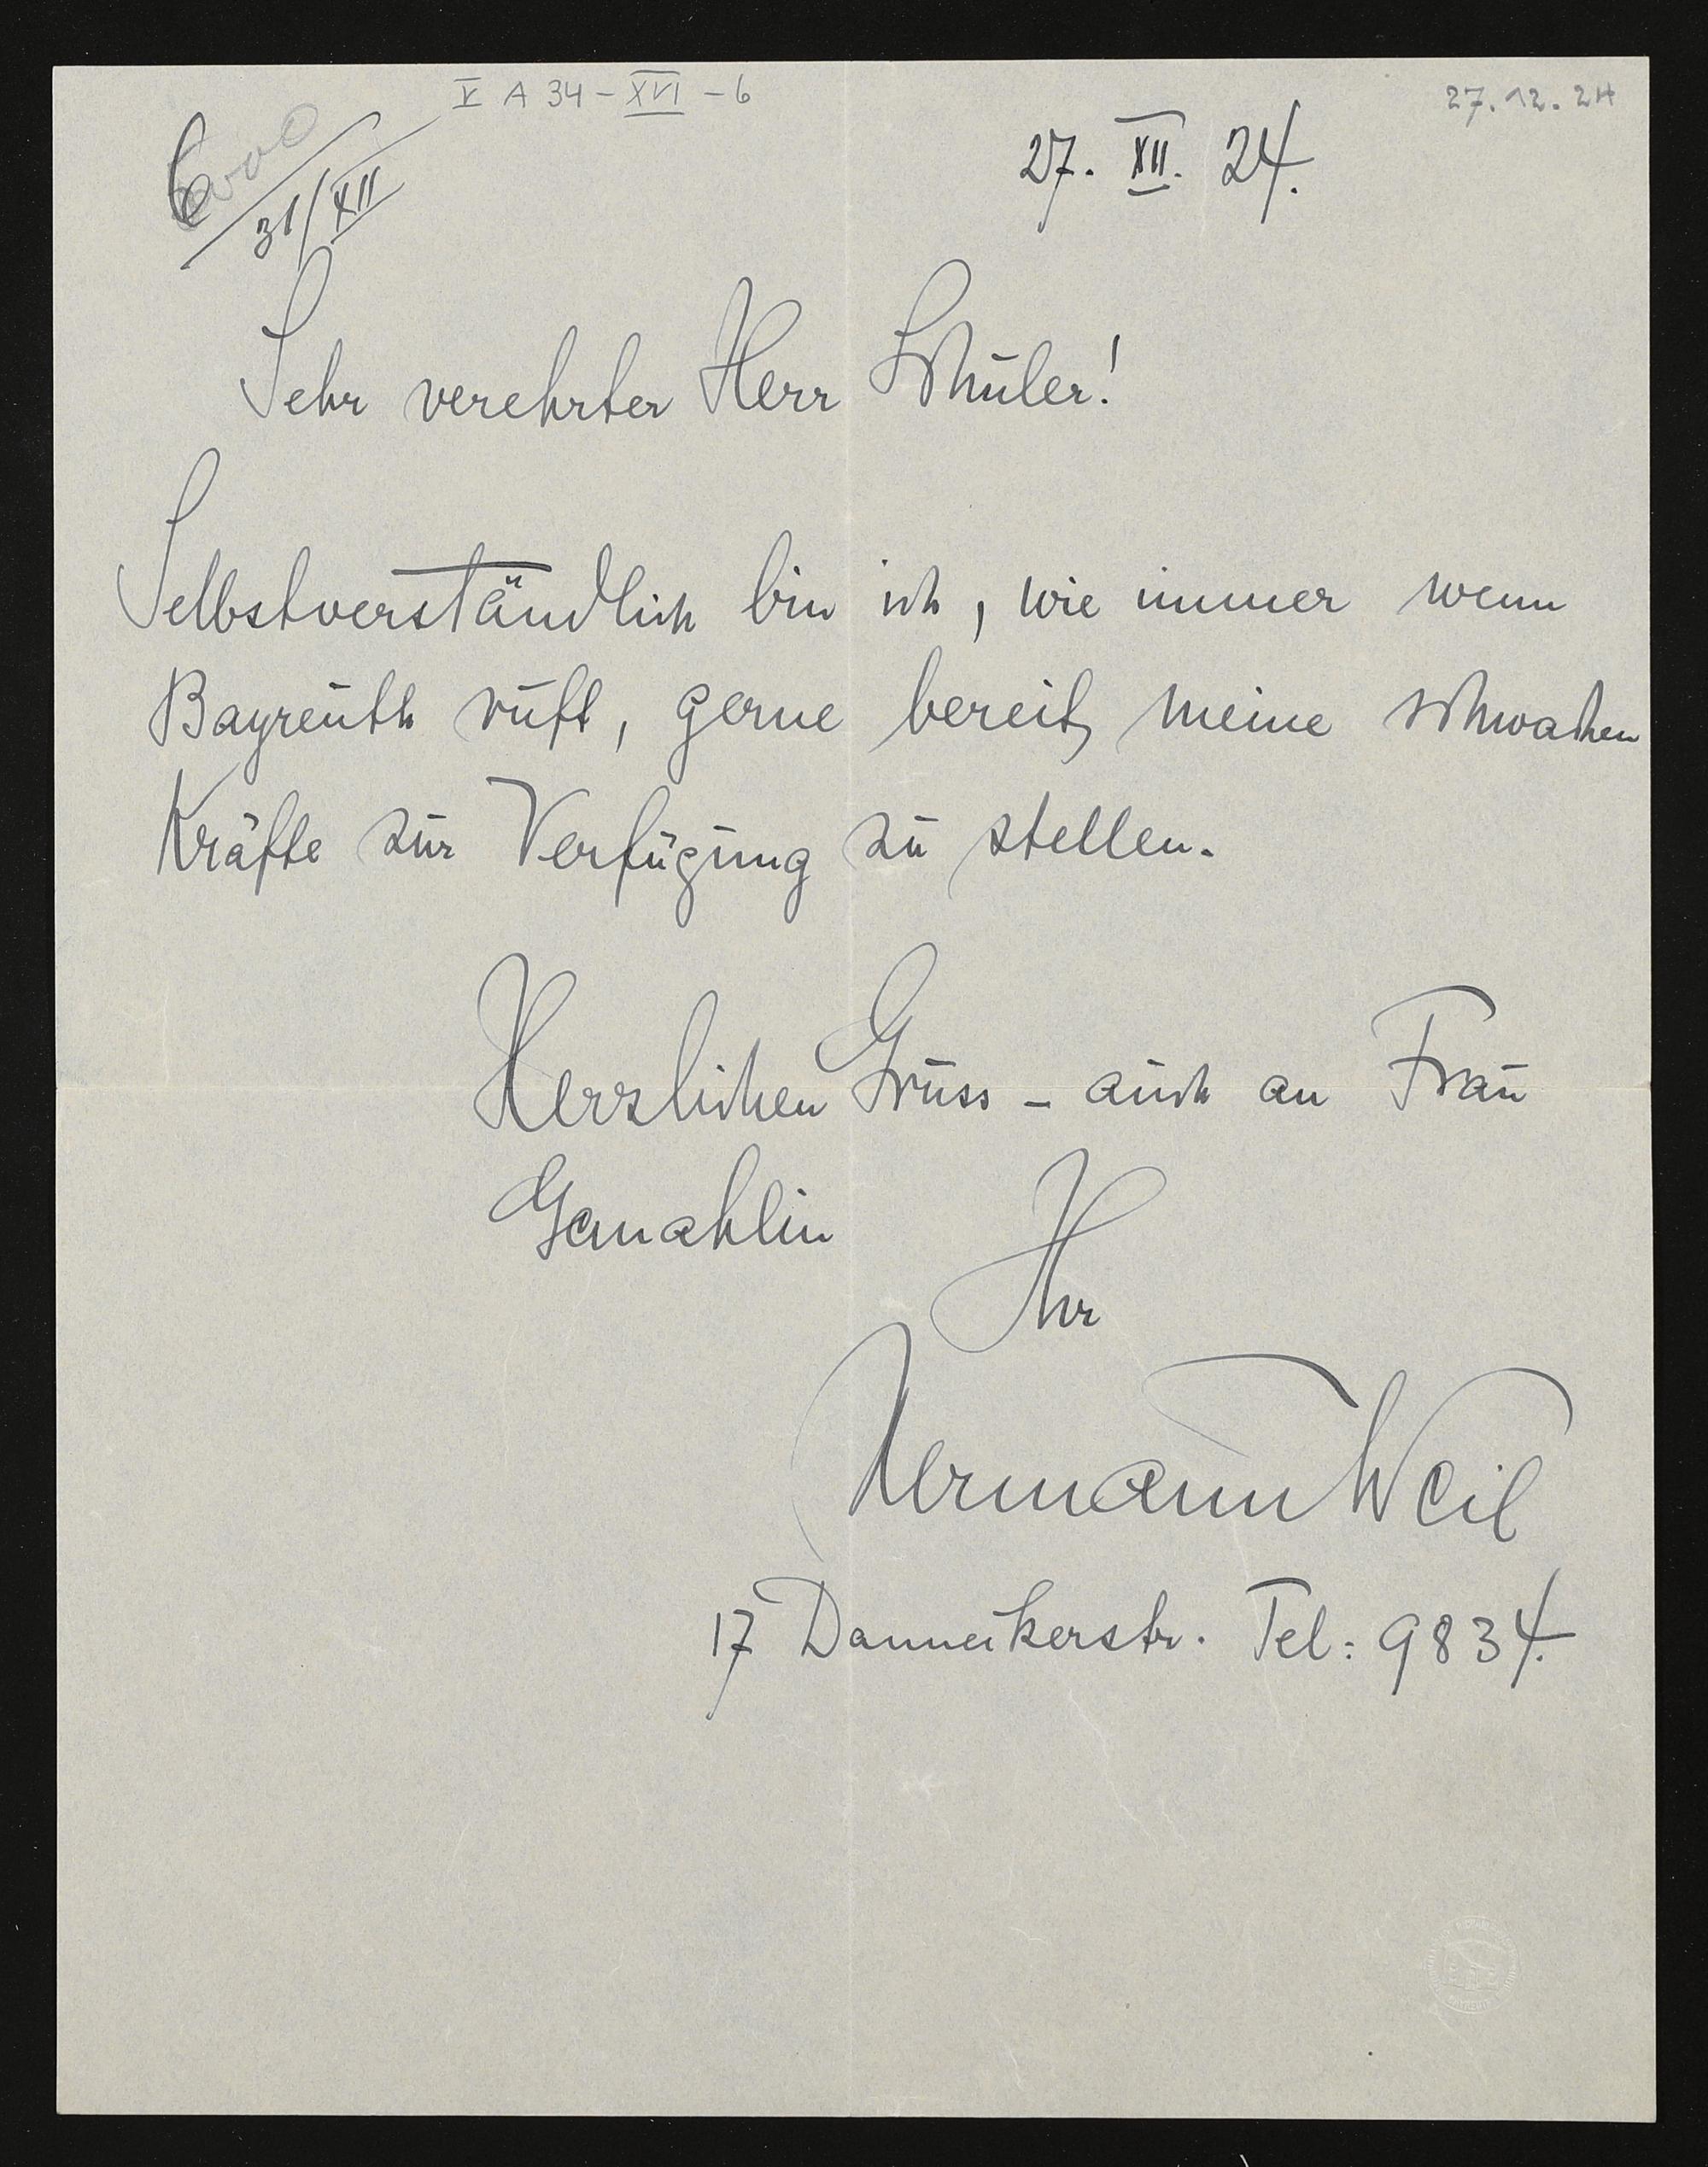 V A 34 - XVI - 6
27.12.24
27. XII. 24.
31/XII
Sehr verehrter Herr Schüler!
Selbstverständlich bin ich, wie immer wenn
Bayreuth ruft, gerne bereit, meine schwachen
Kräfte zur Verfügung zu stellen.
Herzlichen Gruss - auch an Frau
Gemahlin
Ihr
Hermann Weil
17 Danneckerstr. Tel: 9834.